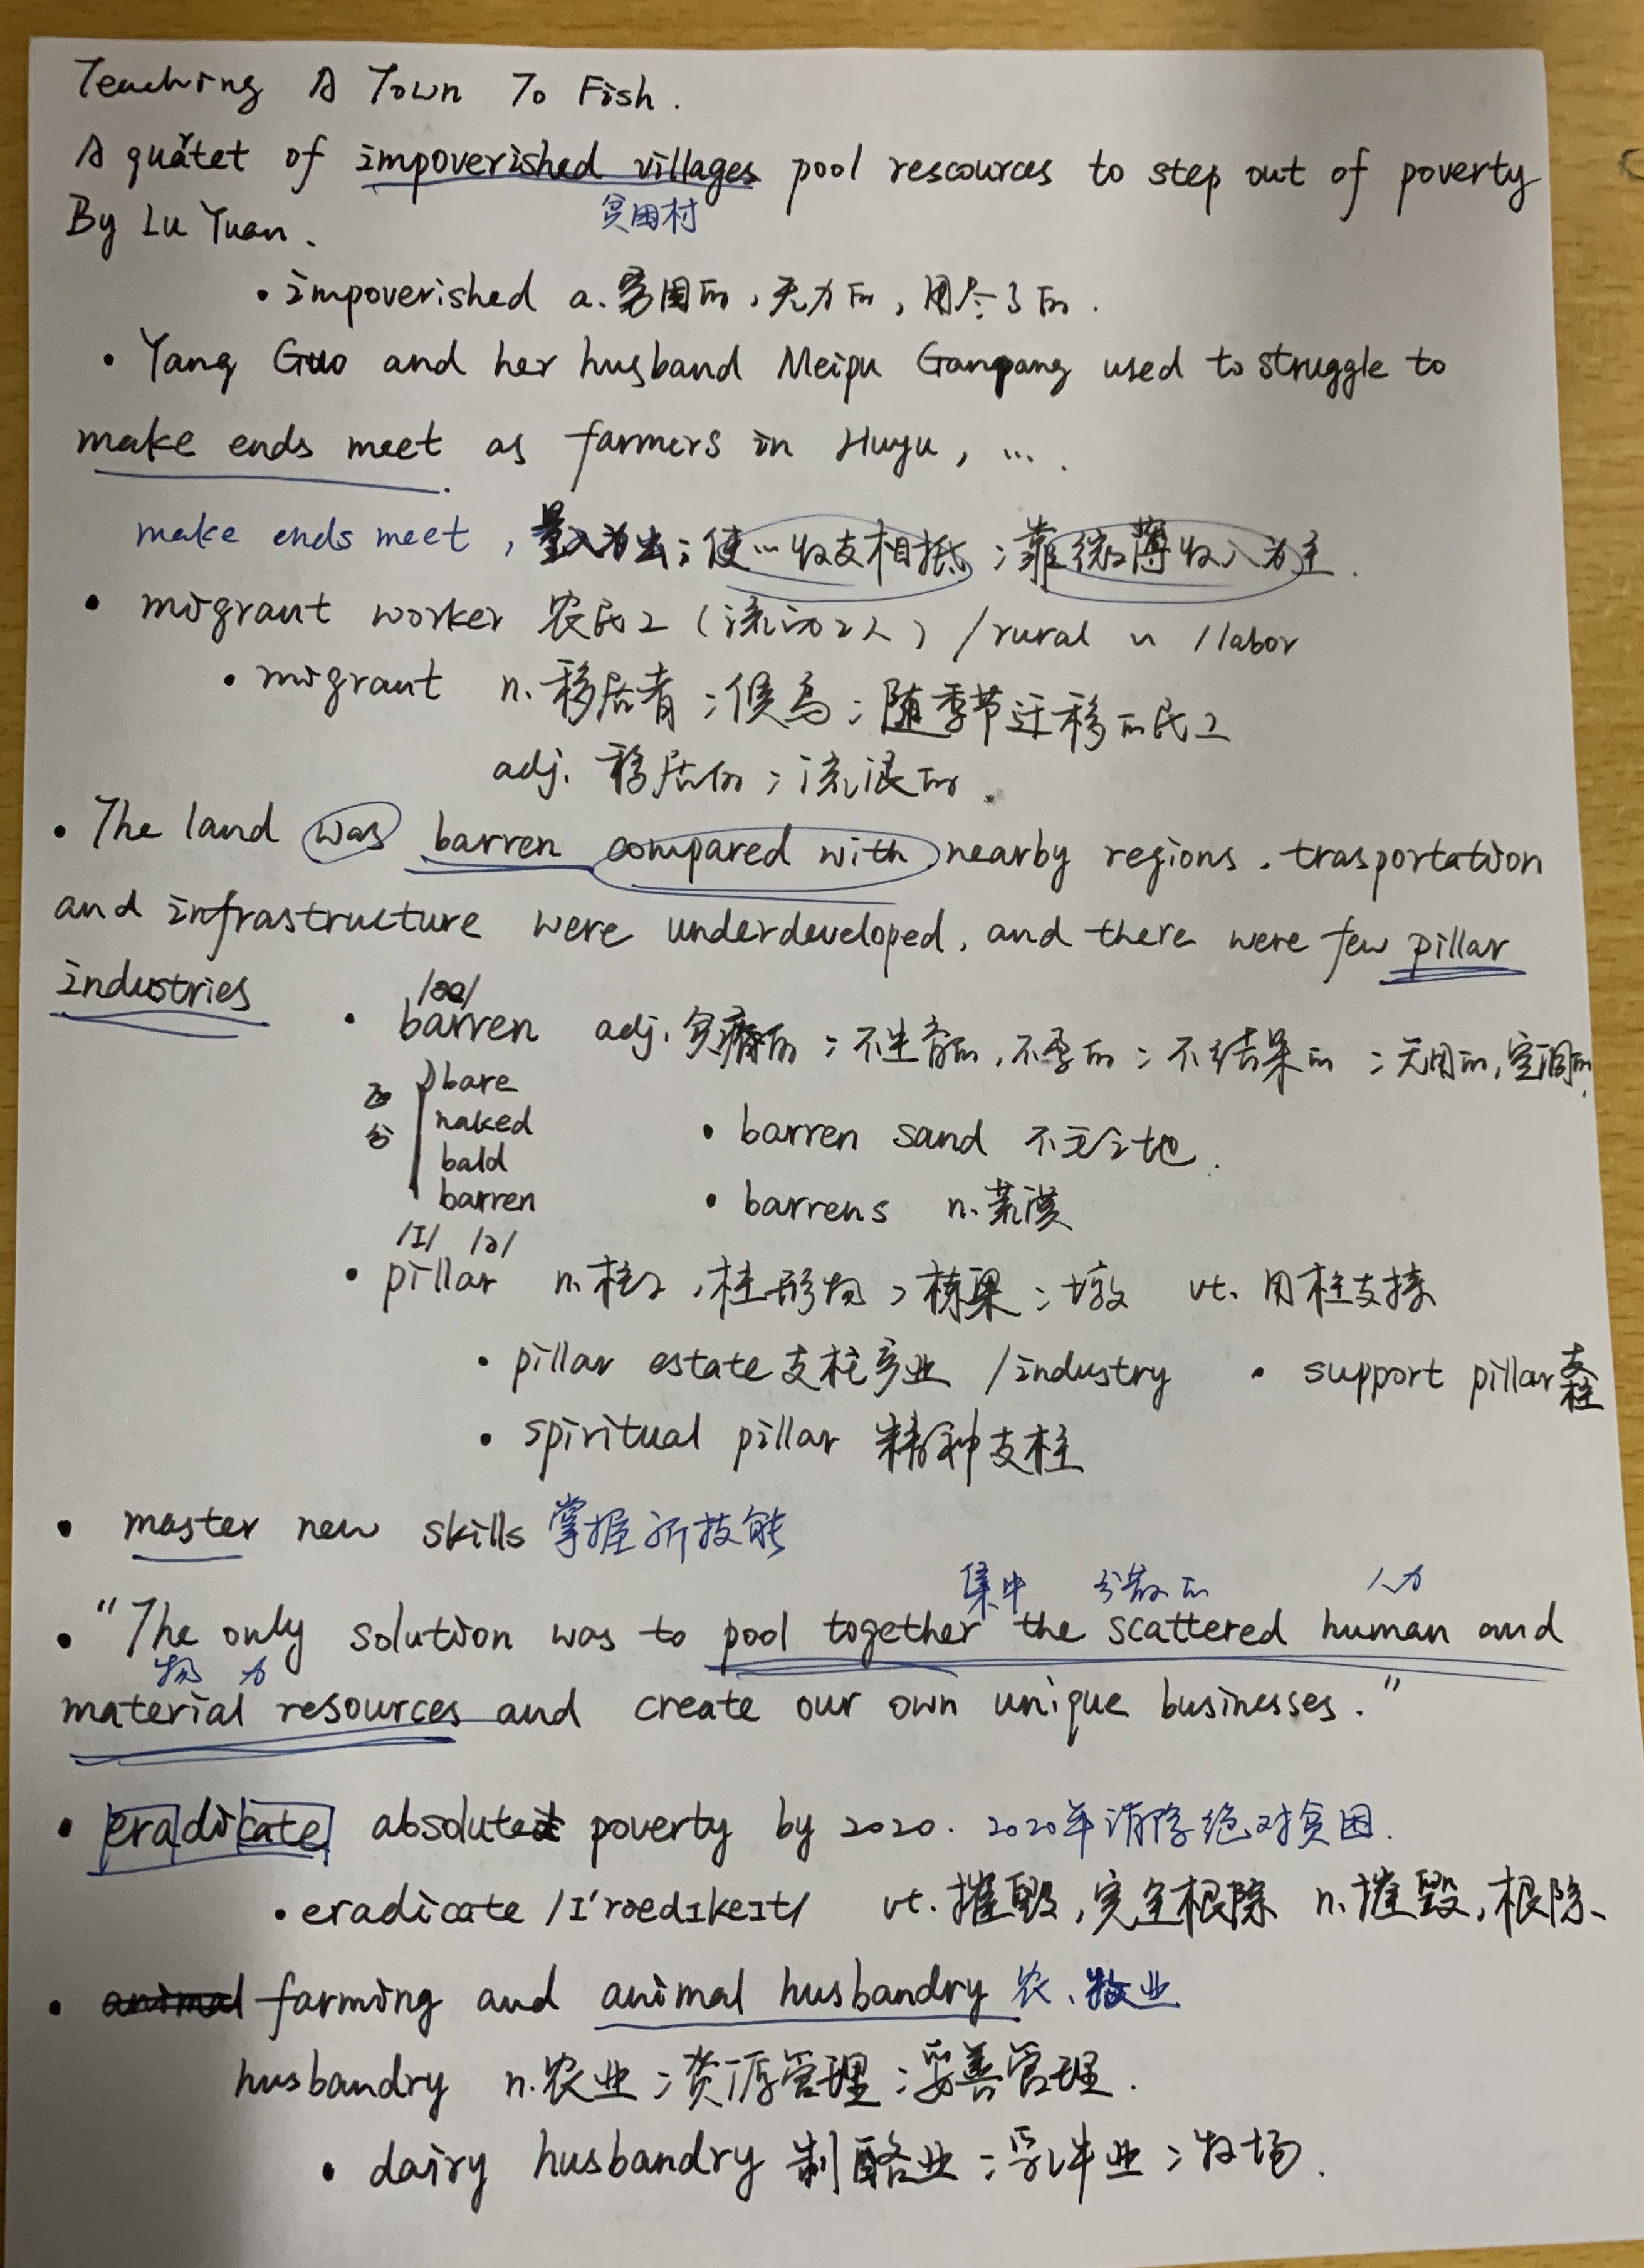 Teaching A Town To Fish.
A quartet of impoverished villages pool rescources to step out of poverty
贫困村
By Lu Yuan.
• impoverished a. 穷困的，无力的，用尽了的.
• Yang Guo and her husband Meipu Ganpang used to struggle to
make ends meet as farmers in Huyu, ... .
make ends meet, 量入为出；使…收支相抵；靠微薄收入为主.
• migrant worker 农民工（流动工人）/rural 〃 /labor
• migrant n. 移居者；候鸟；随季节迁移的民工
adj. 移居的；流浪的.
• The land was barren compared with nearby regions. trasportation
and infrastructure were underdeveloped, and there were few pillar
industries
/æ/
• barren adj. 贫瘠的；不生育的，不孕的；不结果的；无用的，空洞的.
bare
naked
• barren sand 不毛之地.
bald
barren
• barrens n. 荒漠
/I/ /ə/
• pillar n. 柱子，柱形物；栋梁；墩 vt. 用柱支撑
• pillar estate 支柱产业 /industry • support pillar 支柱
• spiritual pillar 精神支柱
• master new skills 掌握新技能
集中 分散的 人力
• "The only solution was to pool together the scattered human and
物力
material resources and create our own unique businesses."
• eradicate absolute poverty by 2020. 2020年消除绝对贫困.
• eradicate /I'rædIkeIt/ vt. 摧毁，完全根除 n. 摧毁，根除、
• animal farming and animal husbandry 农、牧业
husbandry n. 农业；资源管理；妥善管理.
• dairy husbandry 制酪业；乳牛业；牧场.